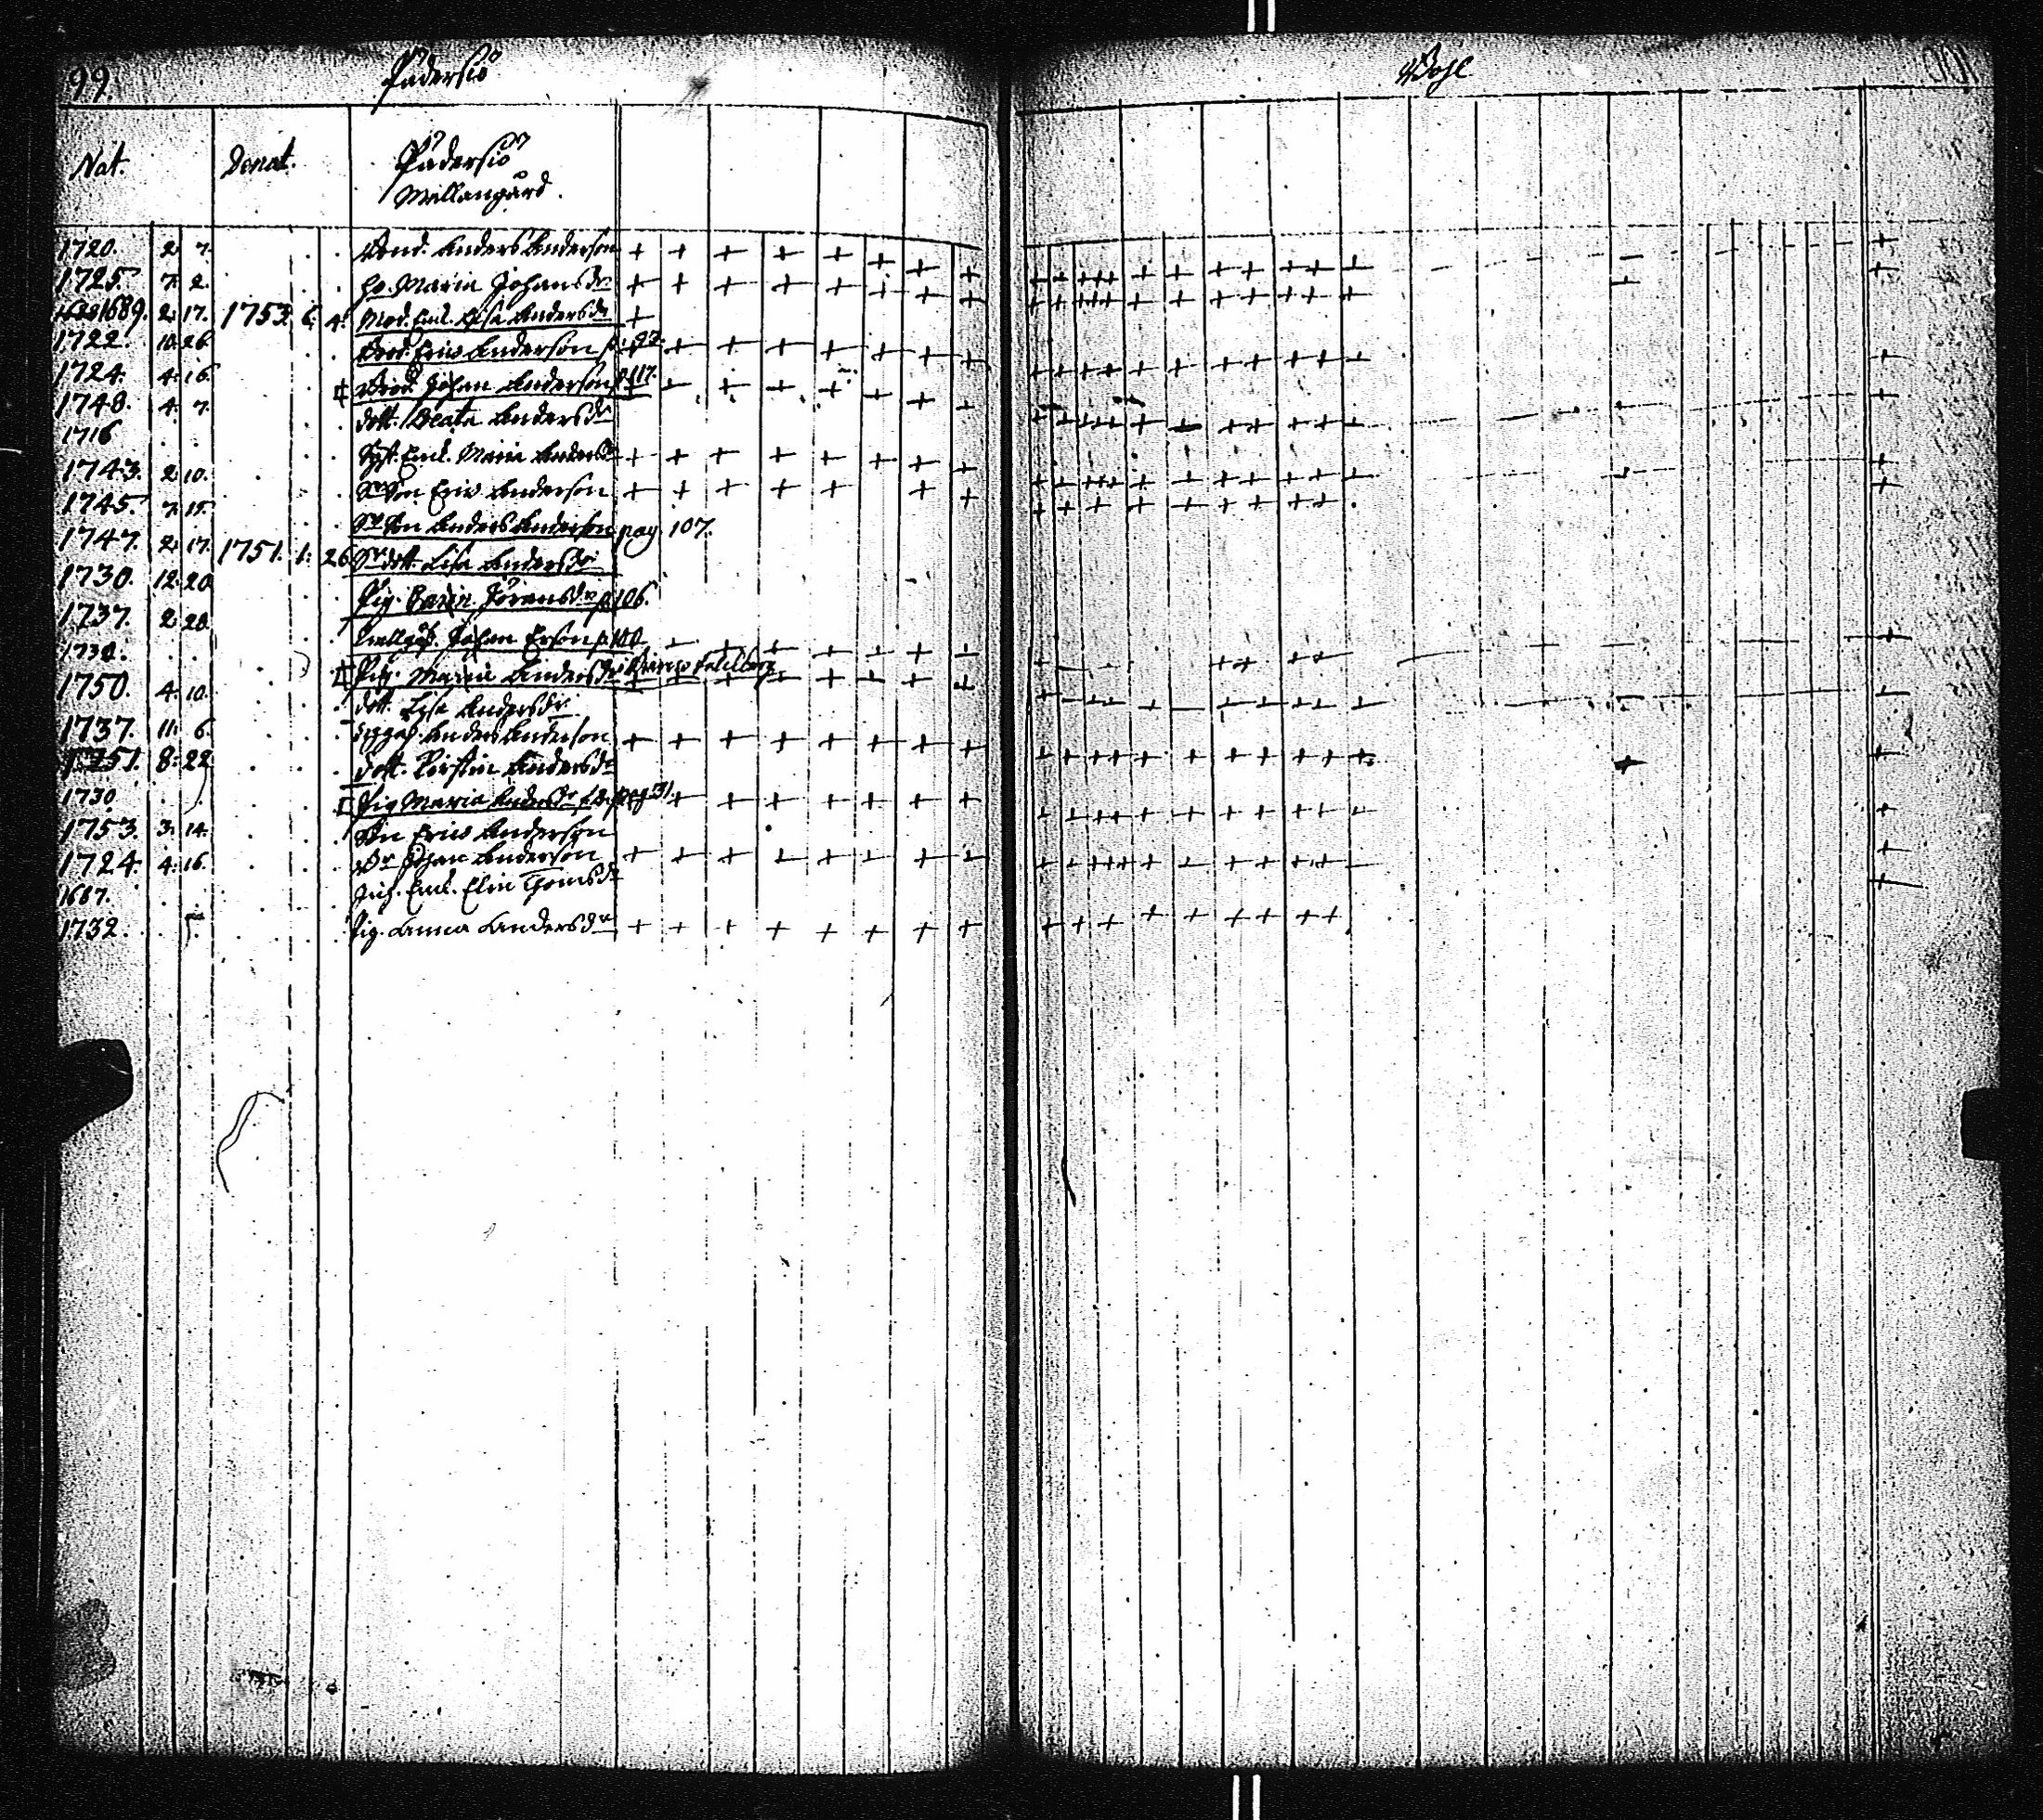 99.
Pädersiö
Bohl
Nat. Denat. Pädersiö
Mellangård.
1720. 2. 7. Bond. Anders Anderson
1725. 7. 2. Hu Maria Johansdr
1689. 2. 17. 1753. 6. 4. Mod. Enk. Lisa Andersdr
1722. 10. 26. Brod. Eric Anderson p. 22.
1724. 4. 16. Brod. Johan Anderson p. 117.
1748. 4. 7. dott. Beata Andersdr
1716 Enk. Maria Andersdr
1743. 2. 10. Son Eric Anderson
1745. 7. 15. Son Anders Anderson pag. 107.
1747. 2. 17. 1751. 1. 26. dott. Lisa Andersdr
1730. 12. 20. Pig. Carin Jöransdr p. 106.
1737. 2. 28. Johan Erson p. 100
1730. Pig. Maria Andersdr
1750. 4. 10. dott. Lisa Andersdr
1737. 11. 6. Anders Anderson
1751. 8. 22 dott. Kirstin Andersdr
1730 Pig Maria Andersdr pag 31.
1753. 3. 14. Son Eric Anderson
1724. 4. 16. Br Johan Anderson
1687. Inh. Enk. Elin Thomsdr
1732. Pig. Anna Andersdr